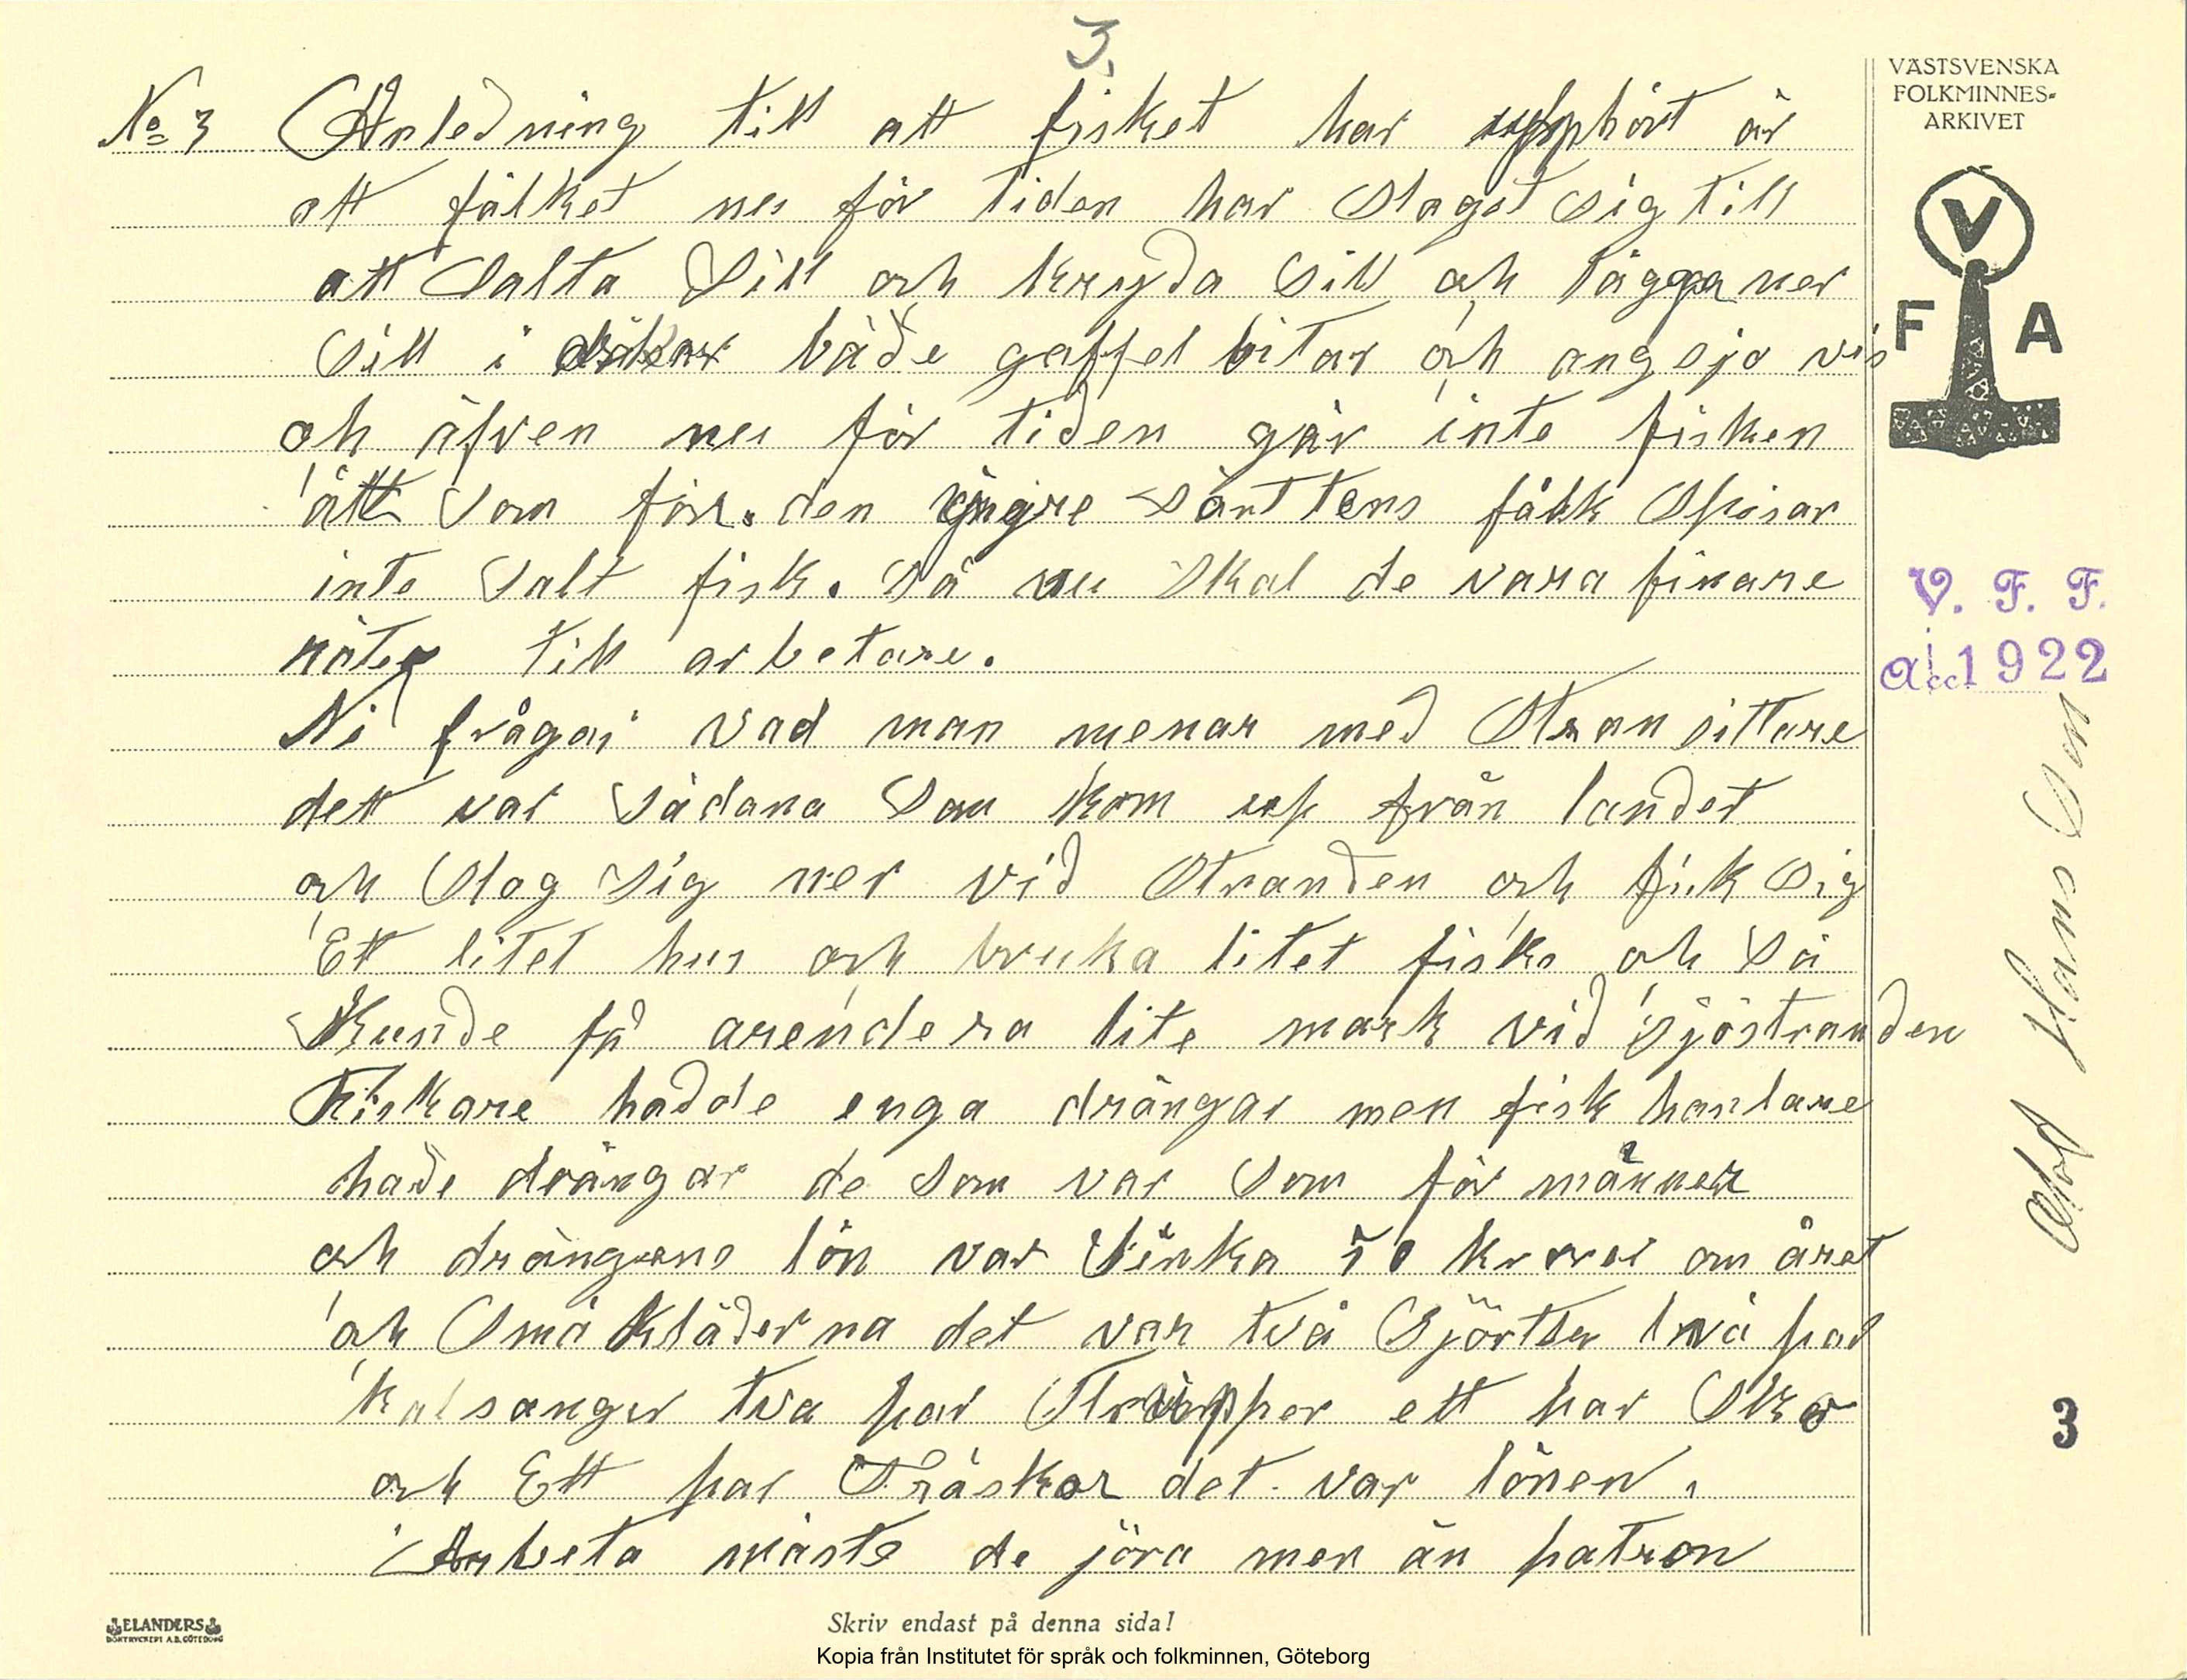 3.
VÄSTSVENSKA
FOLKMINNES-
ARKIVET
No 3 Anledning till att fisket har upphört är
att fålket nu för tiden har slaget sig till
att salta sill och kryda sill och lägga ner
sill i både gaffel bitar och angsjo vis
oh äfven nu för tiden går inte fisken
ått som förr. den yngre fålk spisar
inte salt fisk. så nu skal de vara finare
till arbetare.
Ni frågar vad man menar med Stran sittare
dett var sådana som kom up från landet
och slog sig ner vid stranden och fick sig
Ett litet hus och bruka litet fiske och så
kunde få arendera lite mark vid sjöstranden
Fiskare hadde enga drängar men fisk hanlare
hade drängar de som var som för männer
och drängens lön var 50 kronor om året
och Små kläderna det var två Sjörtter två par
kalsanger tva par Strümpper ett par Skor
och Ett par Träskor det var lönen.
Arbeta måste de jöra mer än patron
V
F A
V. F. F.
acc 1922
Adolf Hans Son
3
ELANDERS
BOKTRYCKERI A.B. GÖTEBORG
Skriv endast på denna sida!
Kopia från Institutet för språk och folkminnen, Göteborg